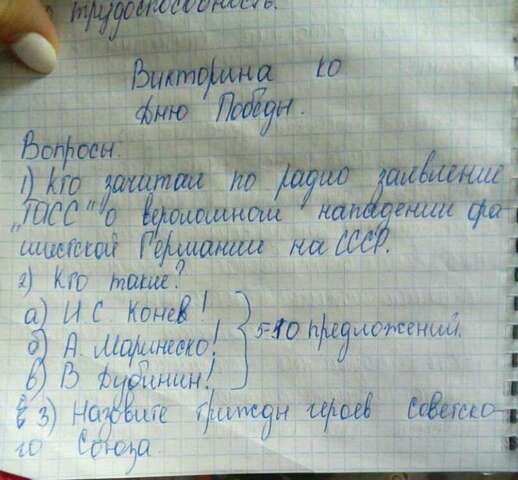 трудоспособность.
Викторина ко
Дню Победы.
Вопросы.
1) Кто зачитал по радио заявление
"ТАСС" о вероломном нападении фа
шистской Германии на СССР.
2) Кто такие?
а) И.С Конев!
б) А. Маринеско! } 5-10 предложений.
в) В Дубинин!
3) Назовите трижды героев Советско-
го Союза.